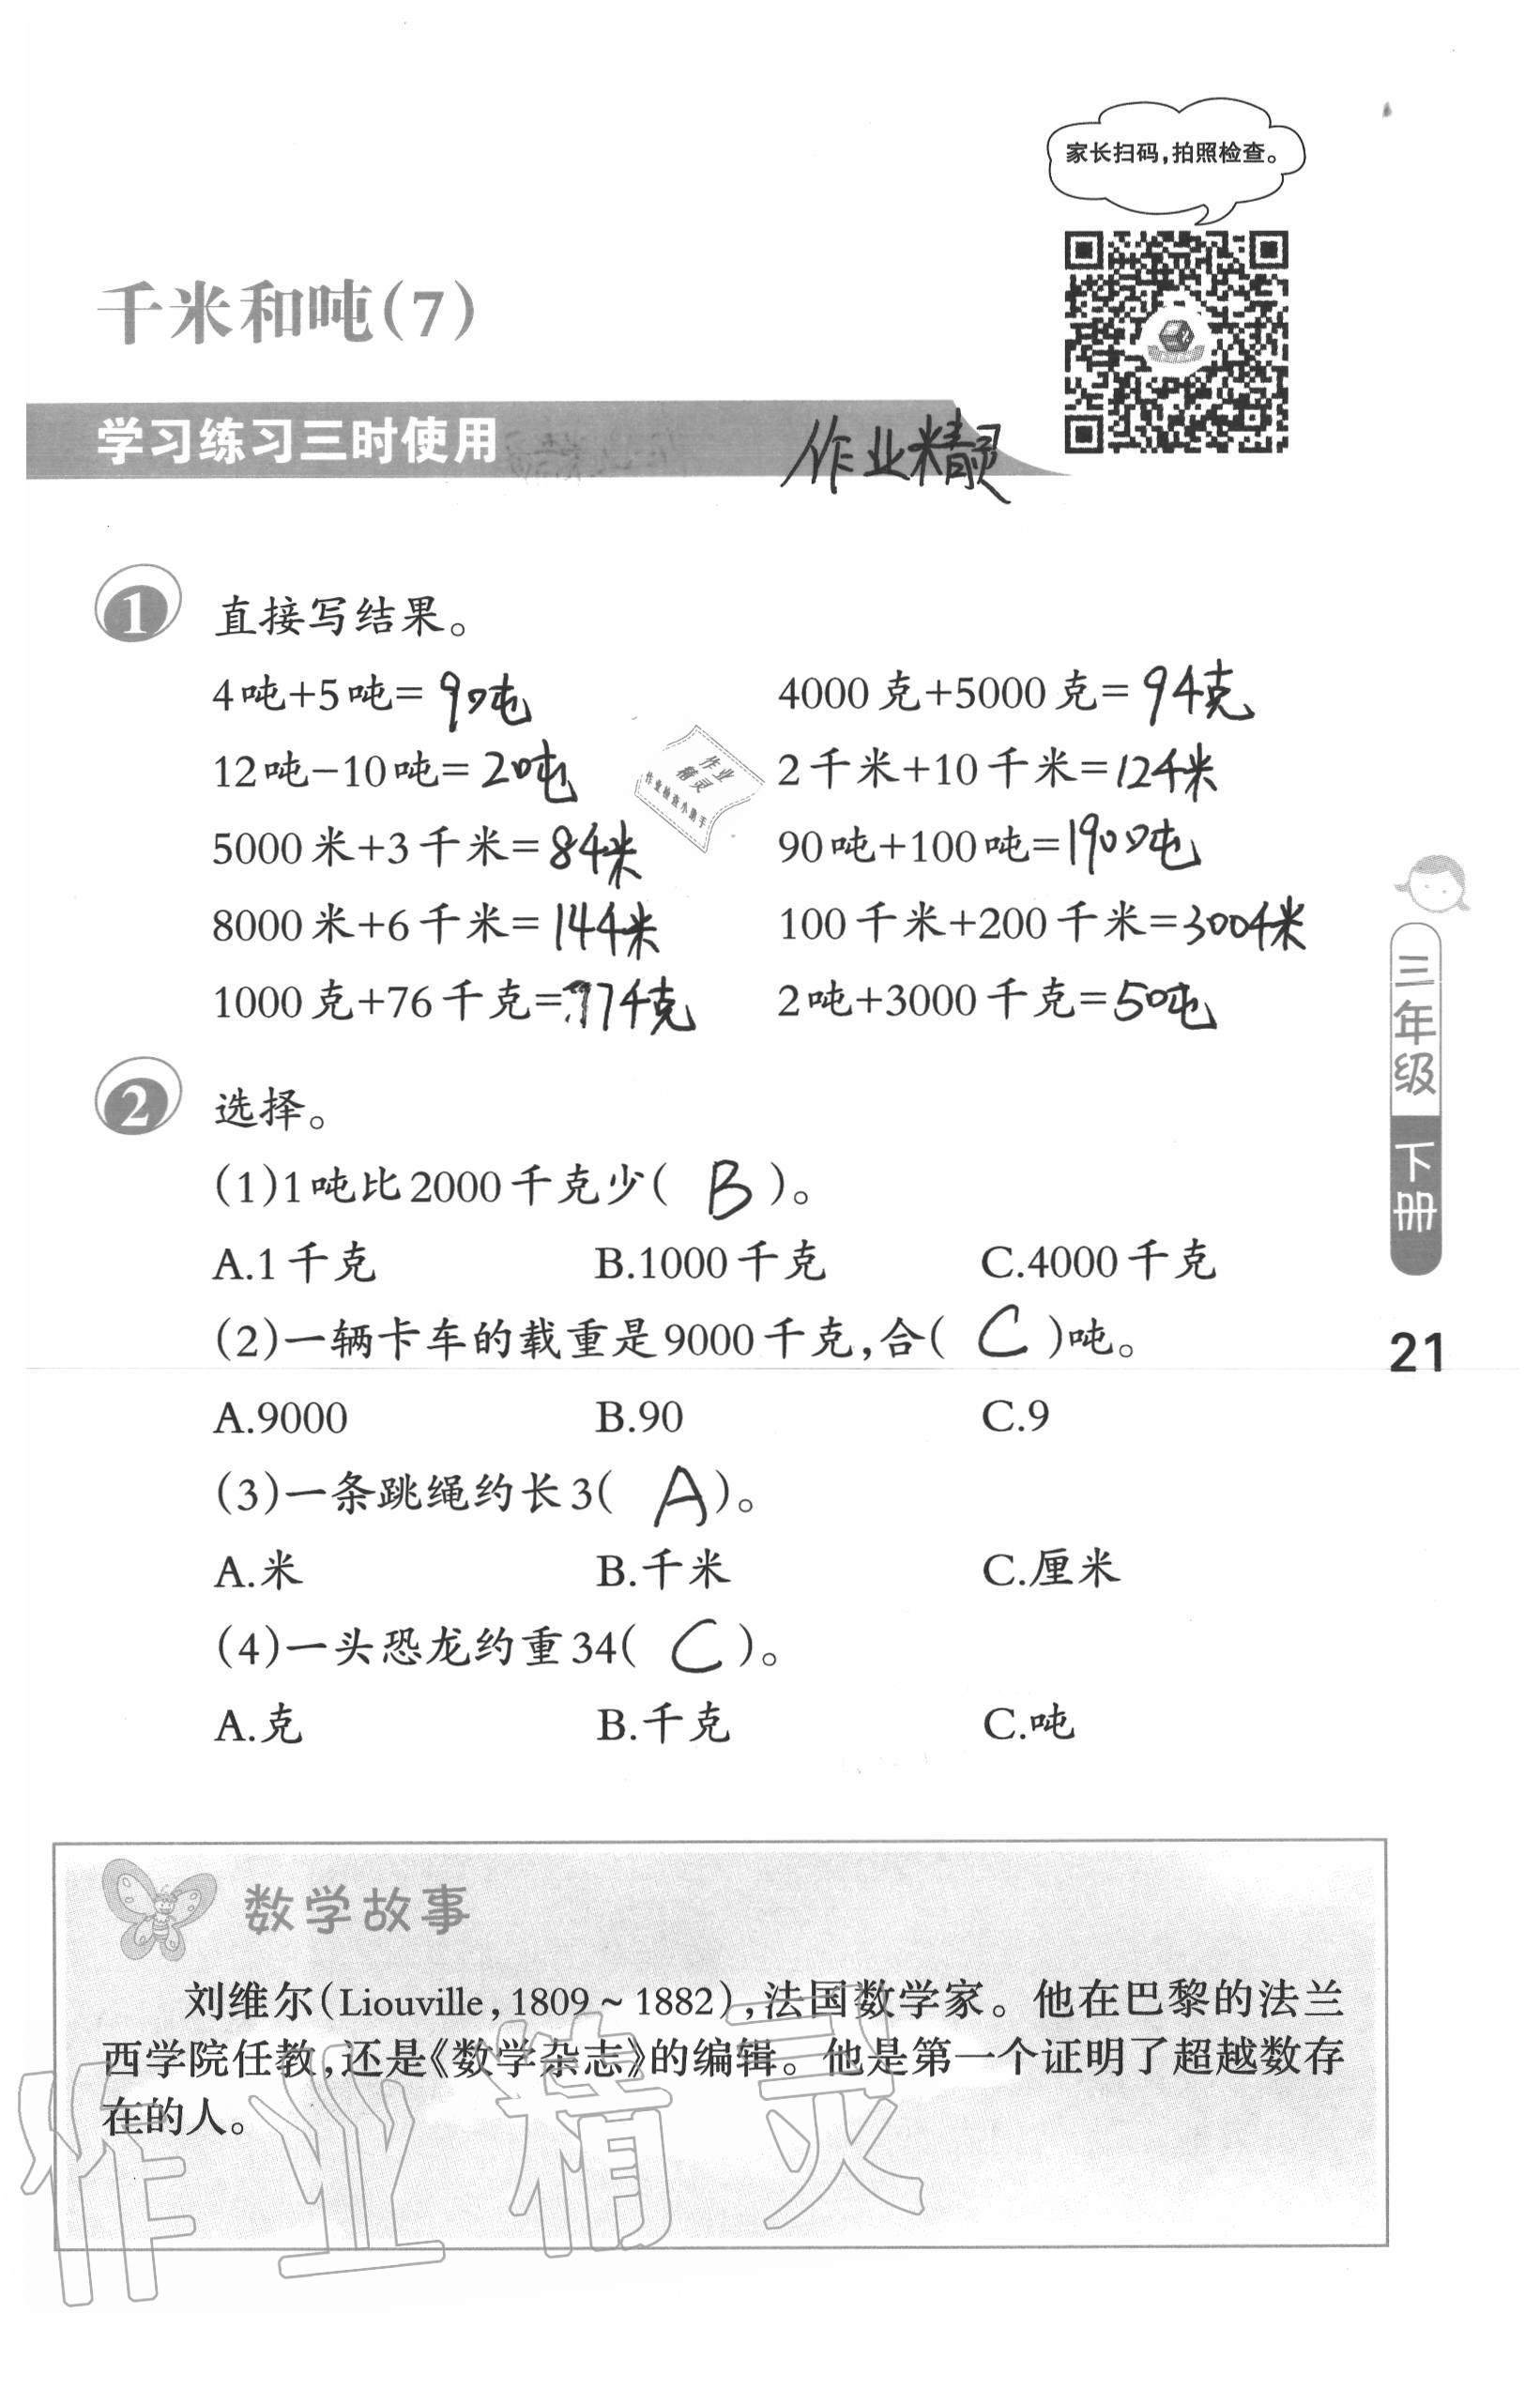 家长扫码,拍照检查。
千米和吨(7)
学习练习三时使用
作业精灵
1 直接写结果。
4吨+5吨=9吨 4000克+5000克=9千克
12吨-10吨=2吨 2千米+10千米=12千米
5000米+3千米=8千米 90吨+100吨=190吨
8000米+6千米=14千米 100千米+200千米=300千米
1000克+76千克=77千克 2吨+3000千克=5吨
作业
精灵
作业检查小助手
2 选择。
(1)1吨比2000千克少( B )。
A.1千克 B.1000千克 C.4000千克
(2)一辆卡车的载重是9000千克,合( C )吨。
A.9000 B.90 C.9
(3)一条跳绳约长3( A )。
A.米 B.千米 C.厘米
(4)一头恐龙约重34( C )。
A.克 B.千克 C.吨
三年级
下册
21
数学故事
刘维尔(Liouville,1809~1882),法国数学家。他在巴黎的法兰
西学院任教,还是《数学杂志》的编辑。他是第一个证明了超越数存
在的人。
作业精灵